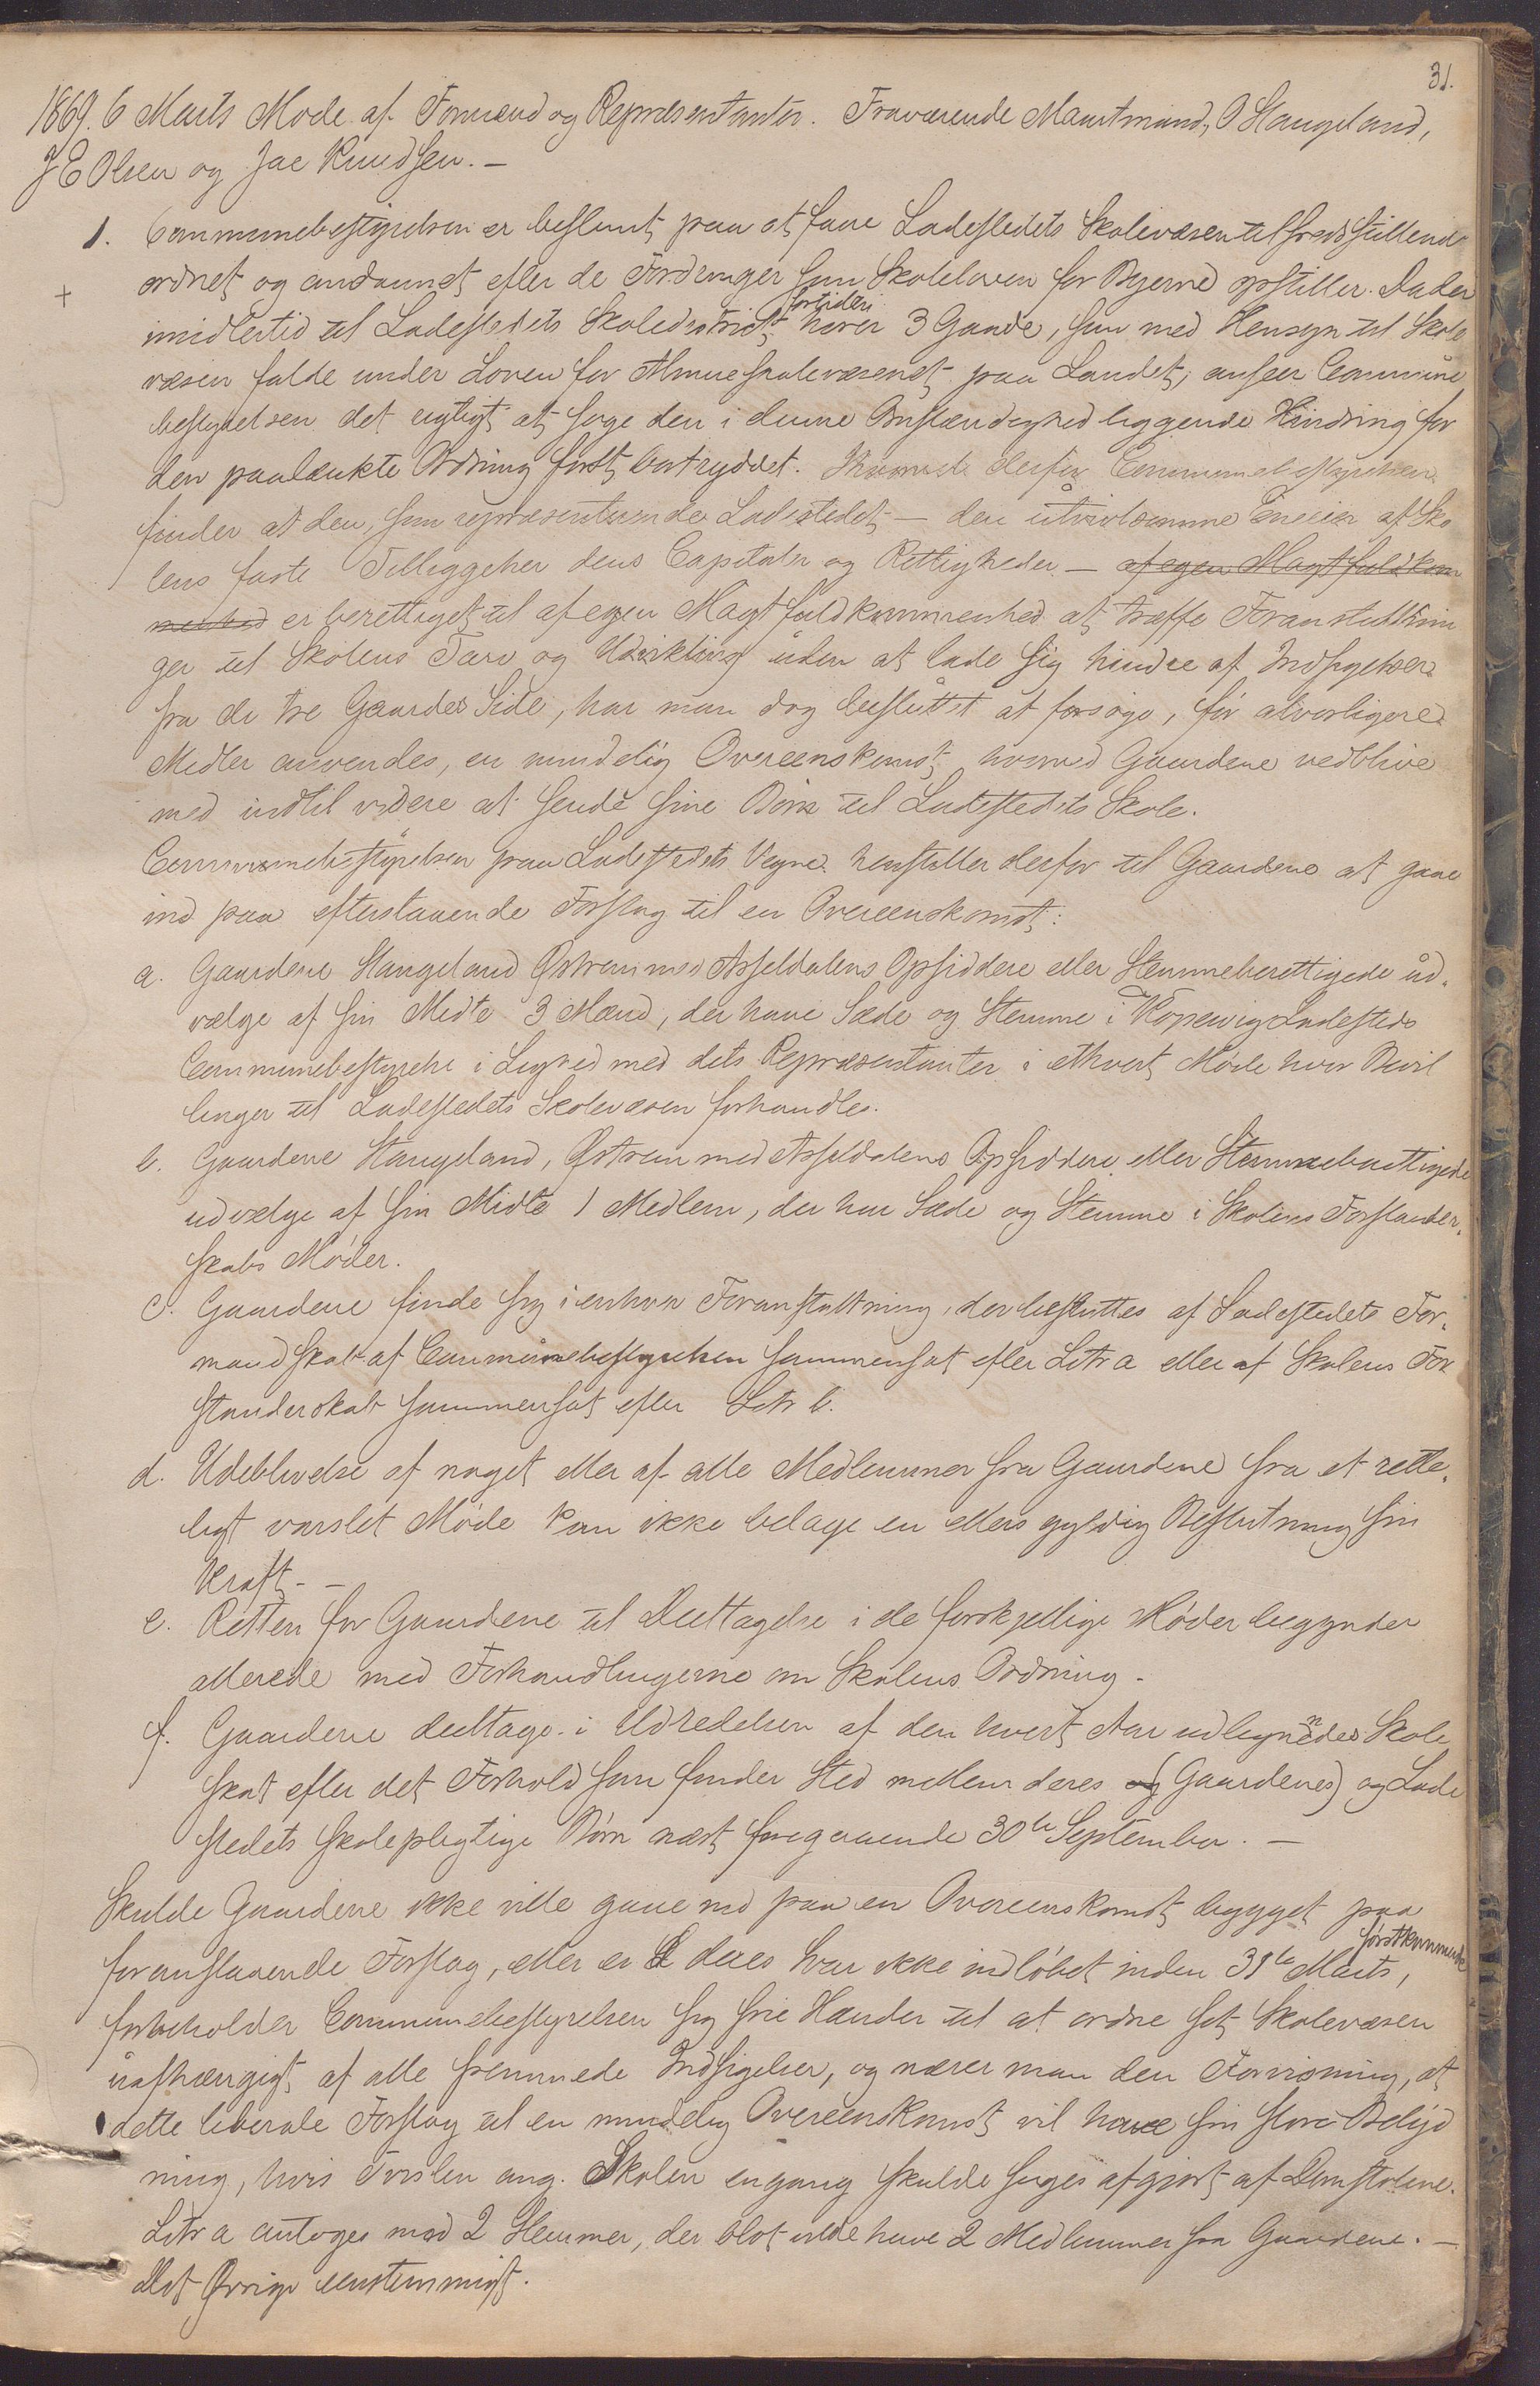 31.
1869. 6 Marts Møde af Formænd og Repræsentanter. Fraværende Maartmand, O Stangeland,
J E Olsen og Jac Knudsen. –
1. Communebestyrelsen er bestemt paa at faae Ladestedets Skolevæsen tilfredsstillende
ordnet og uddannet efter de Fordringer som Skoleloven for Byerne opstiller. Da der
+
imidlertid til Ladestedets Skoledistrict fortiden hører 3 Gaarde, som med Hensyn til Skole
væsen falde under Loven for Almueskolevæsenet paa Landet, anseer Commune
bestyrelsen det rigtigt at søge den i denne Omstændighed liggende Hindring for
den paatænkte Ordning først bortryddet. Skjøndt derfor Communebestyrelsen
finder at den, som repræsenterende Ladestedet – den utvivlsomme Eneeier af Sko
lens faste Tilliggelser dens Capitaler og Rettigheder – af egen Magtfuldkom
menhed er berettiget til af egen Magtfuldkommenhed at træffe Foranstaltnin
ger til Skolens Tarv og Udvikling uden at lade sig hindre af Indsigelser
fra de tre Gaardes Side, har man dog besluttet at forsøge, før alvorligere
Midler anvendes, en mindelig Overeenskomst, hvorved Gaardene vedblive
med indtil videre at sende sine Børn til Ladestedets Skole.
Communebestyrelsen paa Ladestedets Vegne henstiller derfor til Gaardene at gaae
ind paa efterstaaende Forslag til en Overeenskomst:
a. Gaardene Stangeland Østrem med Asseldalens Opsiddere eller Stemmeberettigede ud-
vælge af sin Midte 3 Mænd, der have Sæde og Stemme i Kopervig Ladesteds
Communebestyrelse i Lighed med dets Repræsentanter i ethvert Møde hvor Bevil
linger til Ladestedets Skolevæsen forhandles.
b. Gaardene Stangeland, Østrem med Asseldalens Opsiddere eller Stemmeberettigede
udvælge af sin Midte 1 Medlem, der har Sæde og Stemme i Skolens Forstander-
skabs Møder.
c. Gaardene finde sig i enhver Foranstaltning, der besluttes af Ladestedets For-
mandskab af Communebestyrelsen sammensat efter Litr a eller af Skolens For
standerskab sammensat efter Litr b.
d. Udeblivelse af noget eller af alle Medlemmer fra Gaardene fra et rette-
ligt varslet Møde kan ikke betage en ellers gyldig Beslutning sin
Kraft. –
e. Retten for Gaardene til Deeltagelse i de forskjellige Møder begynder
allerede med Forhandlingerne om Skolens Ordning.
f. Gaardene deeltage i Udredelsen af den hvert Aar udlignendes Skole
skat efter det Forhold som finder Sted mellem deres og (Gaardenes) og Lade
stedets skolepligtige Børn næst foregaaende 30te September. –
Skulde Gaardene ikke ville gaae ind paa en Overeenskomst bygget paa
foranstaaende Forslag, eller er deres Svar ikke indløbet inden 31te Marts, førstkommende
forbeholder Communebestyrelsen sig frie Hænder til at ordne sit Skolevæsen
uafhængigt af alle fremmede Indsigelser, og nærer man den Forvisning, at
dette liberale Forslag til en mindelig Overeenskomst vil have sin store Betyd
ning, hvis Tvisten ang. Skolen engang skulde søges afgjort af Domstolene.
Litr a antoges mod 2 Stemmer, der blot vilde have 2 Medlemmer fra Gaardene. –
Det Øvrige eenstemmigt.